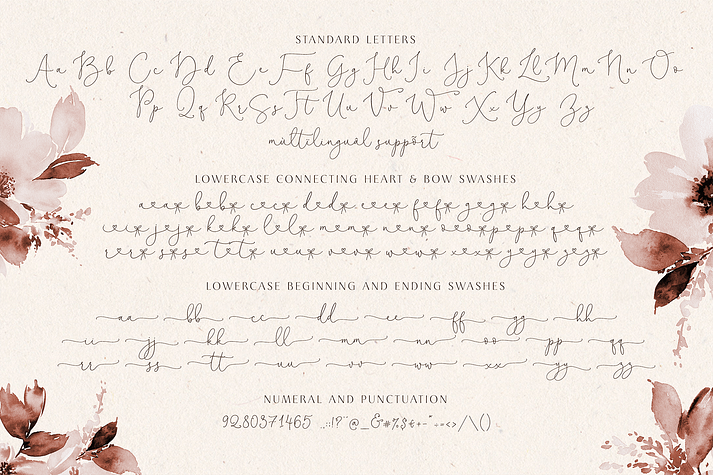 STANDARD LETTERS
Aa Bb Cc Dd Ee Ff Gg Hh Ii Jj Kk Ll Mm Nn Oo
Pp Qq Rr Ss Tt Uu Vv Ww Xx Yy Zz
multilingual support
LOWERCASE CONNECTING HEART & BOW SWASHES
LOWERCASE BEGINNING AND ENDING SWASHES
aa bb cc dd ee ff gg hh
ii jj kk ll mm nn oo pp qq
rr ss tt uu vv ww xx yy zz
NUMERAL AND PUNCTUATION
9280371465